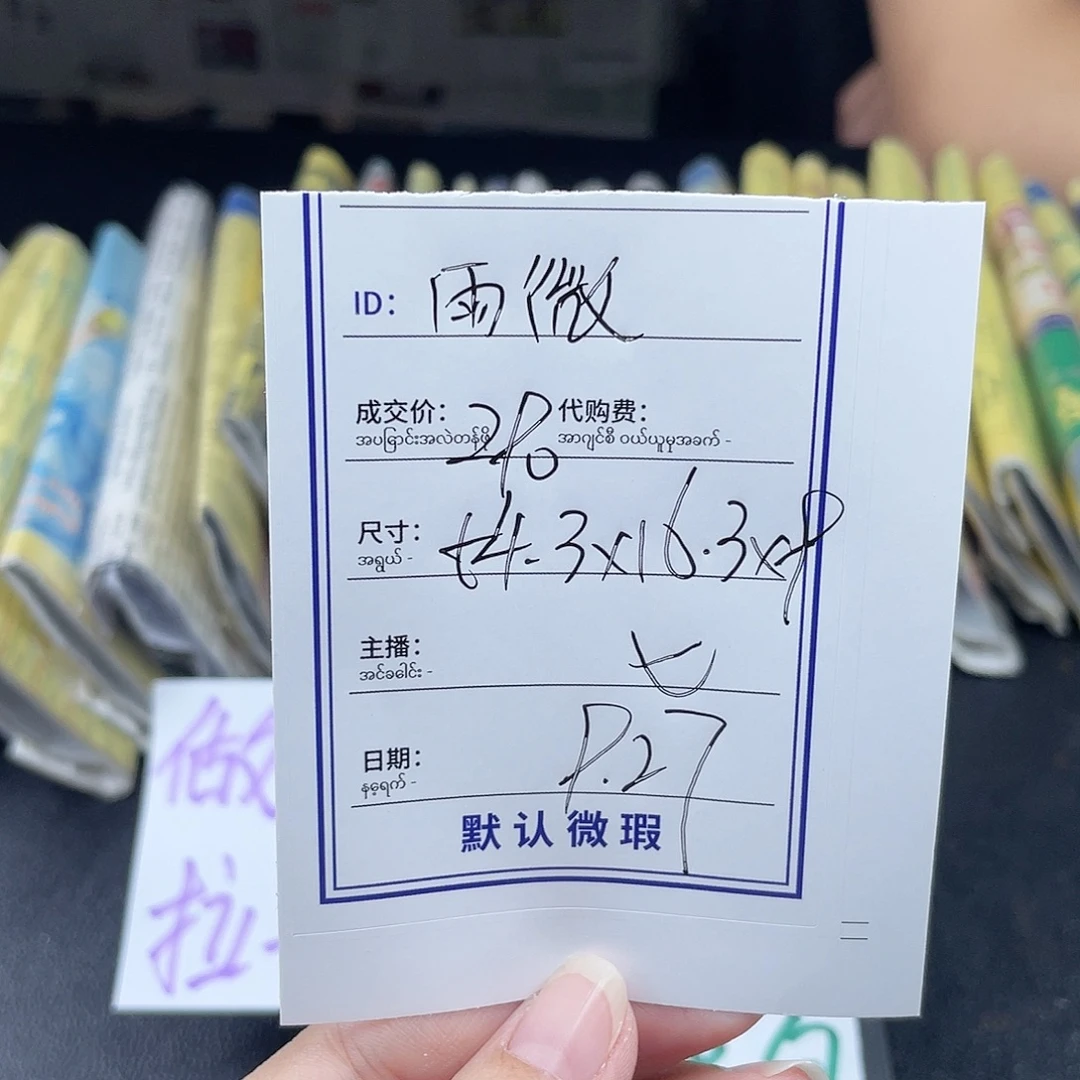 ID: 雨微
成交价: 280 代购费:
အပြောင်းအလဲတန်ဖို့ အာဂျင်စီ ဝယ်ယူမှုအခက် -
尺寸: 54.3x16.3x8
အရွယ် -
主播: 七
အင်ခခေါင်း -
日期: 8.27
နေ့ရက် -
默认微瑕
做
拉